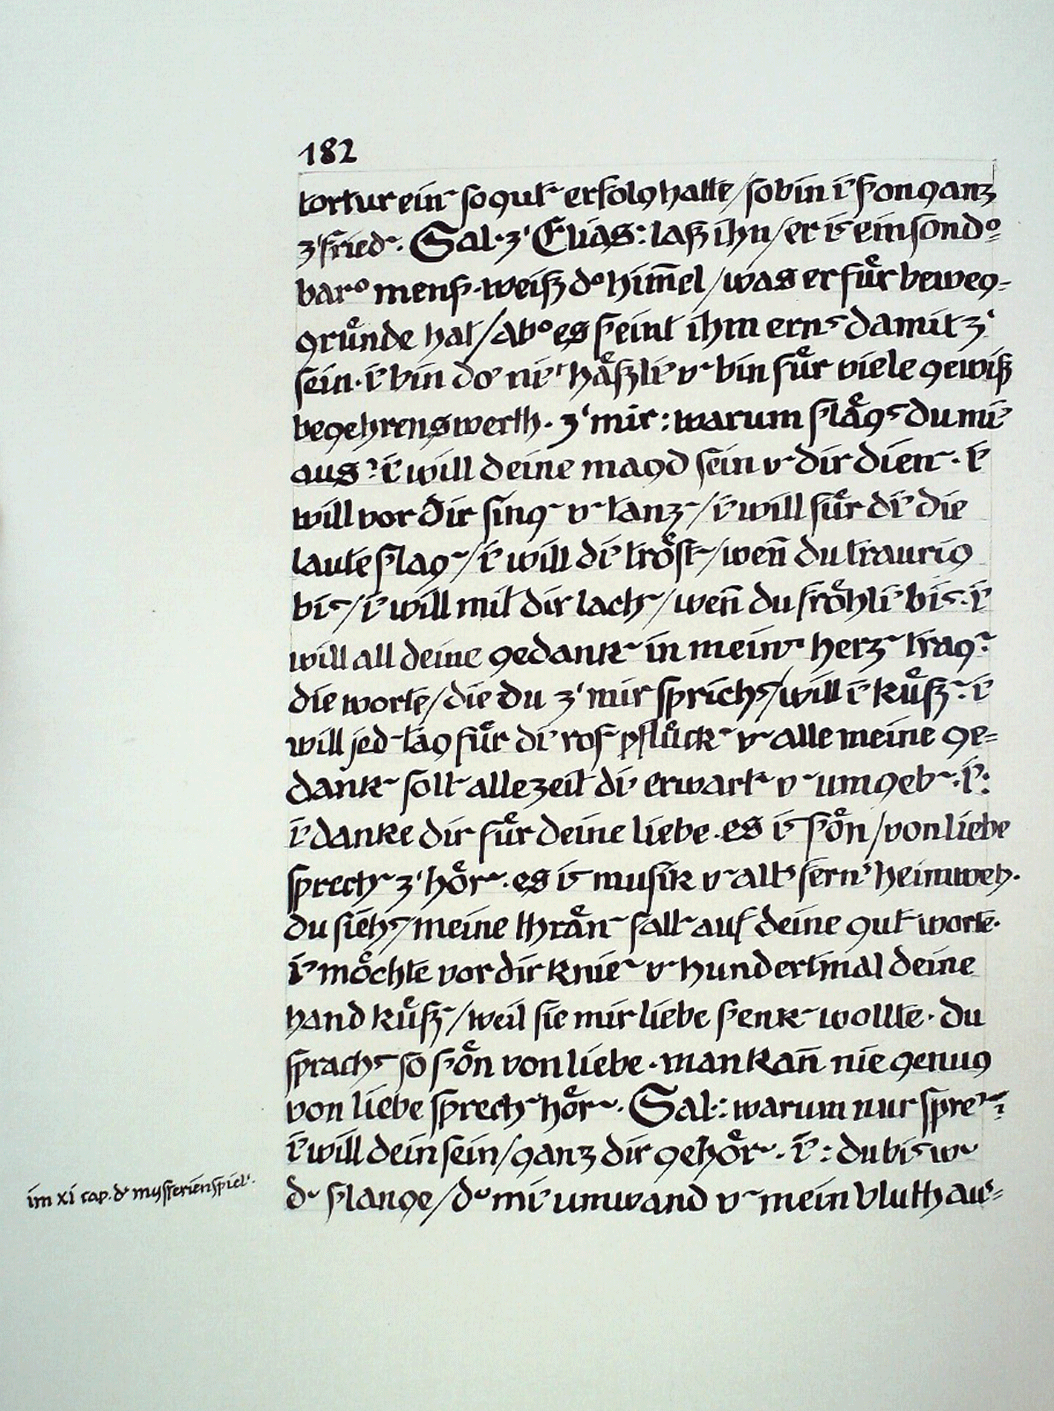 182
tortur ein~ so gut~ erfolg hatte/so bin i' s'on ganz
z' fried~. Sal. z' Elias: laß ihn/er is ein sond°=
bar° mens'. weiß d° him̄el/was er fůr beweg-
grůnde hat/ab° es s'eint ihm erns damit z'
sein. i' bin do' ni' håßli' v~ bin fůr viele gewiß
begehrenswerth. z' mir: warum s'lågs du mi'
aus? i' will deine magd sein v~ dir dien~. i'
will vor dir sing~ v~ tanz~/i' will fůr di' die
laute s'lag~/i' will di' tro̊st~/wen̄ du traurig
bis/i' will mit dir lach~/wen̄ du fro̊hli' bis. i'
will all deine gedank~ in mein~ herz~ trag~.
die worte/die du z' mir sprichs/will i' kůß~. i'
will jed~ tag fůr di' ros~ pflůck~ v~ alle meine ge=
dank~ soll~ allezeit di' erwart~ v~ umgeb~. i':
i' danke dir fůr deine liebe. es is s'o̊n/von liebe
sprech~ z' ho̊r~. es is musik v~ alt' fern' heimweh.
du siehs/meine thrån~ fall~ auf deine gut~ worte.
i' mo̊chte vor dir knie~ v~ hundertmal deine
hand kůß~/weil sie mir liebe s'enk~ wollte. du
sprachs so s'o̊n von liebe. man kan̄ nie genug
von liebe sprech~ ho̊r~. Sal.: warum nur spre'~?
i' will dein sein/ganz dir geho̊r~. i': du bis w~
d~ s'lange/d~ mi' umwand v~ mein bluth aus=
im xi cap. d' mysterienspiel'.